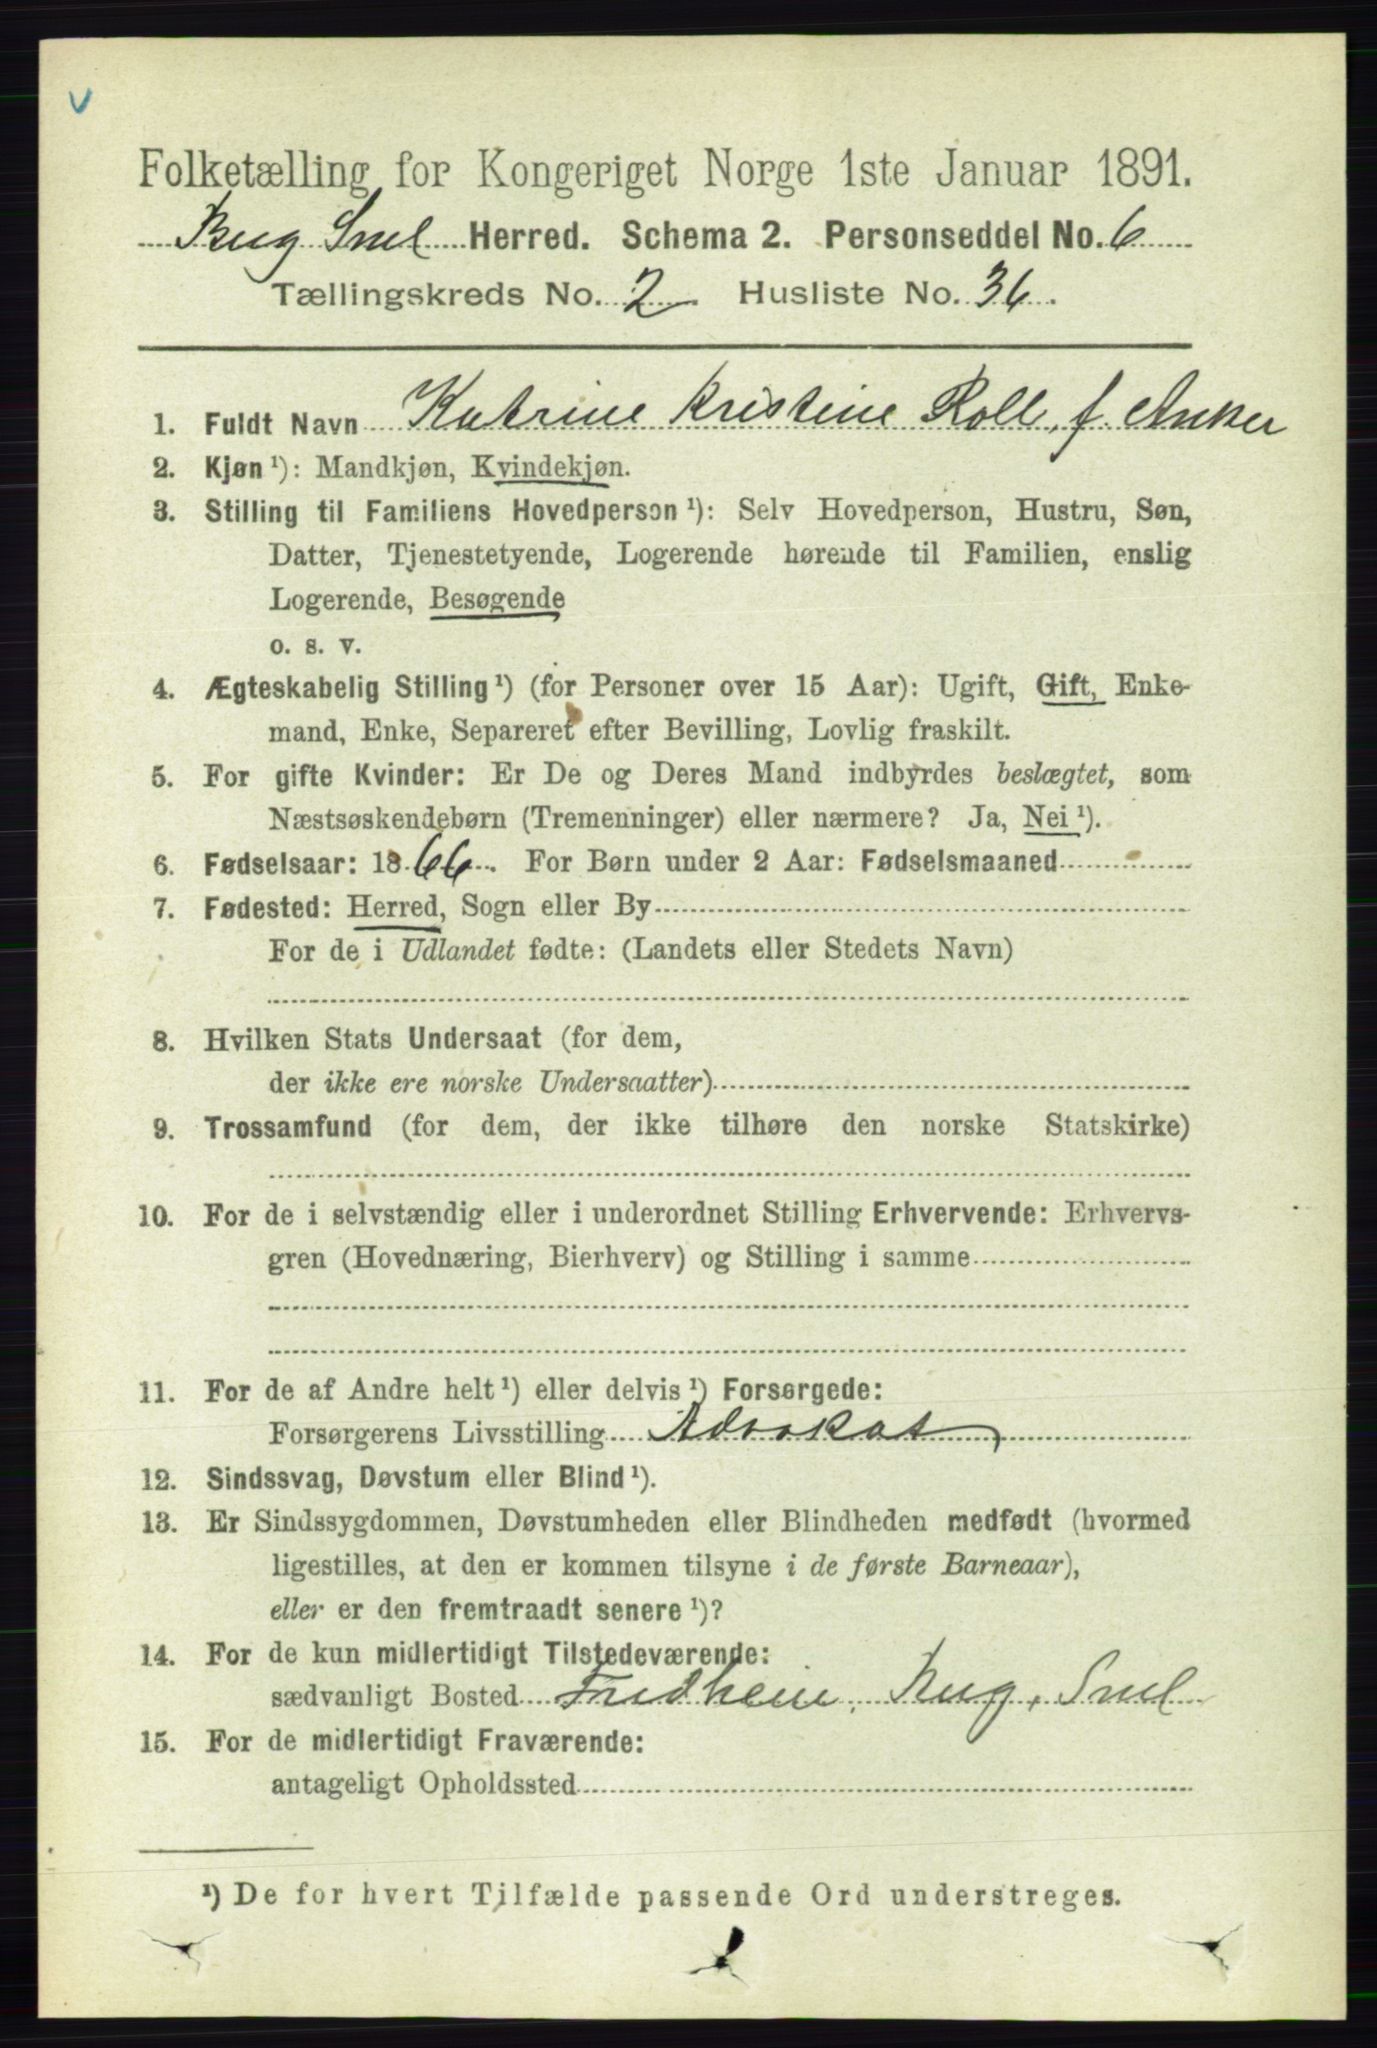 v
Folketælling for Kongeriget Norge 1ste Januar 1891.
Berg Sml Herred. Schema 2. Personseddel No. 6
Tællingskreds No. 2. Husliste No. 36.
1. Fuldt Navn Katrine Kristine Roll, f. Anker
2. Kjøn ¹): Mandkjøn, Kvindekjøn.
3. Stilling til Familiens Hovedperson ¹): Selv Hovedperson, Hustru, Søn,
Datter, Tjenestetyende, Logerende hørende til Familien, enslig
Logerende, Besøgende
o. s. v.
4. Ægteskabelig Stilling ¹) (for Personer over 15 Aar): Ugift, Gift, Enke-
mand, Enke, Separeret efter Bevilling, Lovlig fraskilt.
5. For gifte Kvinder: Er De og Deres Mand indbyrdes beslægtet, som
Næstsøskendebørn (Tremenninger) eller nærmere? Ja, Nei ¹).
6. Fødselsaar: 1866. For Børn under 2 Aar: Fødselsmaaned
7. Fødested: Herred, Sogn eller By
For de i Udlandet fødte: (Landets eller Stedets Navn)
8. Hvilken Stats Undersaat (for dem,
der ikke ere norske Undersaatter)
9. Trossamfund (for dem, der ikke tilhøre den norske Statskirke)
10. For de i selvstændig eller i underordnet Stilling Erhvervende: Erhvervs-
gren (Hovednæring, Bierhverv) og Stilling i samme
11. For de af Andre helt ¹) eller delvis ¹) Forsørgede:
Forsørgerens Livsstilling Advokat
12. Sindssvag, Døvstum eller Blind ¹).
13. Er Sindssygdommen, Døvstumheden eller Blindheden medfødt (hvormed
ligestilles, at den er kommen tilsyne i de første Barneaar),
eller er den fremtraadt senere ¹)?
14. For de kun midlertidigt Tilstedeværende:
sædvanligt Bosted Fredheim, Berg, Sml
15. For de midlertidigt Fraværende:
antageligt Opholdssted
¹) De for hvert Tilfælde passende Ord understreges.